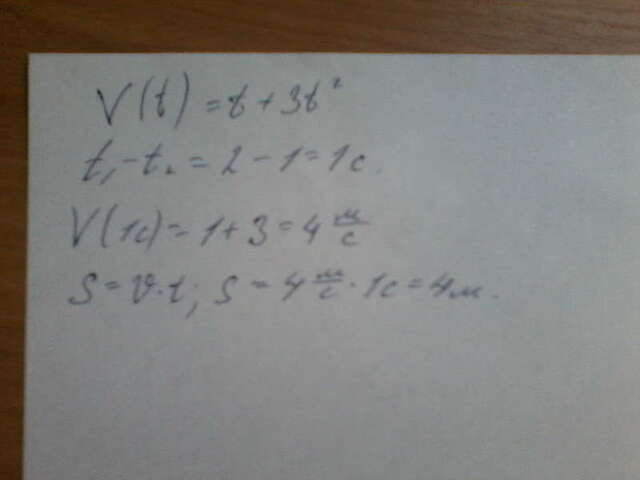 V(t) = t + 3t²
t₁ - t₂ = 2 - 1 = 1 с.
V(1с) = 1 + 3 = 4 м/с
S = v·t; S = 4 м/с · 1с = 4м.